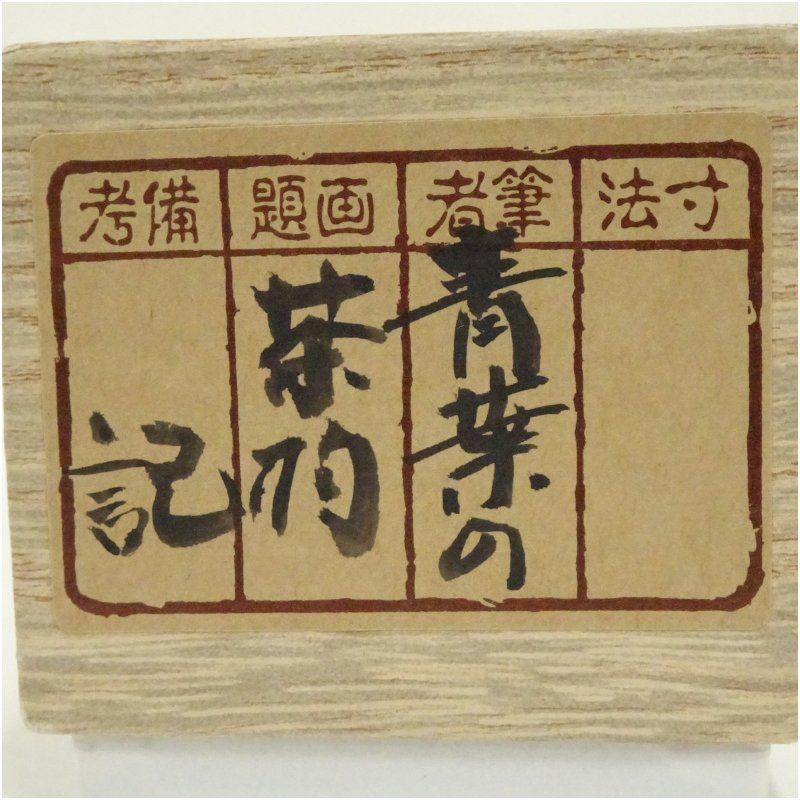 寸法
筆者
画題
備考
青葉の
茶
記